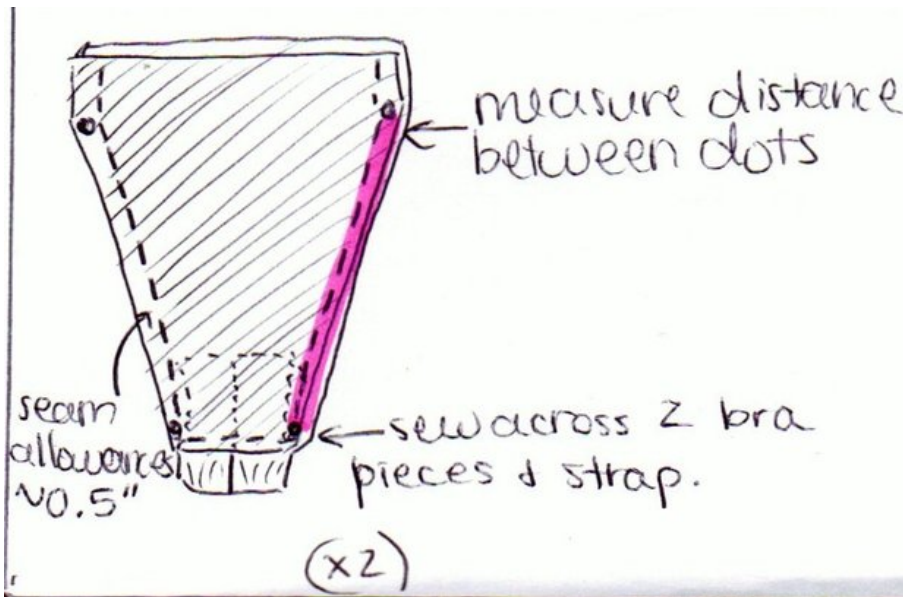 measure distance
between dots
seam
allowances
~0.5"
sew across 2 bra
pieces & strap.
(x2)